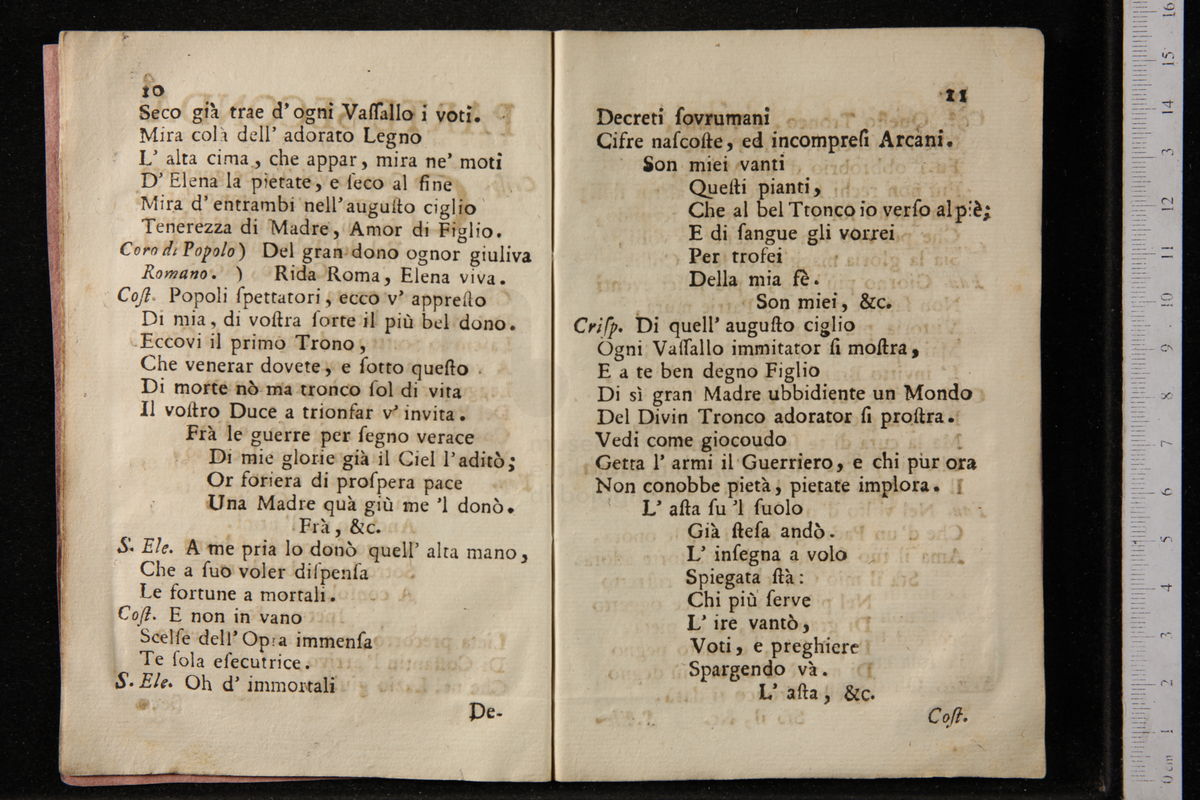 10
Seco già trae d' ogni Vaſſallo i voti.
Mira colà dell' adorato Legno
L' alta cima, che appar, mira ne' moti
D' Elena la pietate, e ſeco al fine
Mira d' entrambi nell' auguſto ciglio
Tenerezza di Madre, Amor di Figlio.
Coro di Popolo) Del gran dono ognor giuliva
Romano. ) Rida Roma, Elena viva.
Coſt. Popoli ſpettatori, ecco v' appreſto
Di mia, di voſtra ſorte il più bel dono.
Eccovi il primo Trono,
Che venerar dovete, e ſotto queſto
Di morte nò ma tronco ſol di vita
Il voſtro Duce a trionfar v' invita.
Frà le guerre per ſegno verace
Di mie glorie già il Ciel l'aditò;
Or foriera di proſpera pace
Una Madre quà giù me 'l donò.
Frà, &c.
S. Ele. A me pria lo donò quell' alta mano,
Che a ſuo voler diſpenſa
Le fortune a mortali.
Coſt. E non in vano
Scelſe dell' Opra immenſa
Te ſola eſecutrice.
S. Ele. Oh d' immortali
De-
11
Decreti ſovrumani
Cifre naſcoſte, ed incompreſi Arcani.
Son miei vanti
Queſti pianti,
Che al bel Ttonco io verſo al piè;
E di ſangue gli vorrei
Per trofei
Della mia fè.
Son miei, &c.
Criſp. Di quell' auguſto ciglio
Ogni Vaſſallo immitator ſi moſtra,
E a te ben degno Figlio
Di sì gran Madre ubbidiente un Mondo
Del Divin Tronco adorator ſi proſtra.
Vedi come giocoudo
Getta l' armi il Guerriero, e chi pur ora
Non conobbe pietà, pietate implora.
L' aſta ſu 'l ſuolo
Già ſteſa andò.
L' inſegna a volo
Spiegata ſtà:
Chi più ferve
L' ire vantò,
Voti, e preghiere
Spargendo và.
L' aſta, &c.
Coſt.